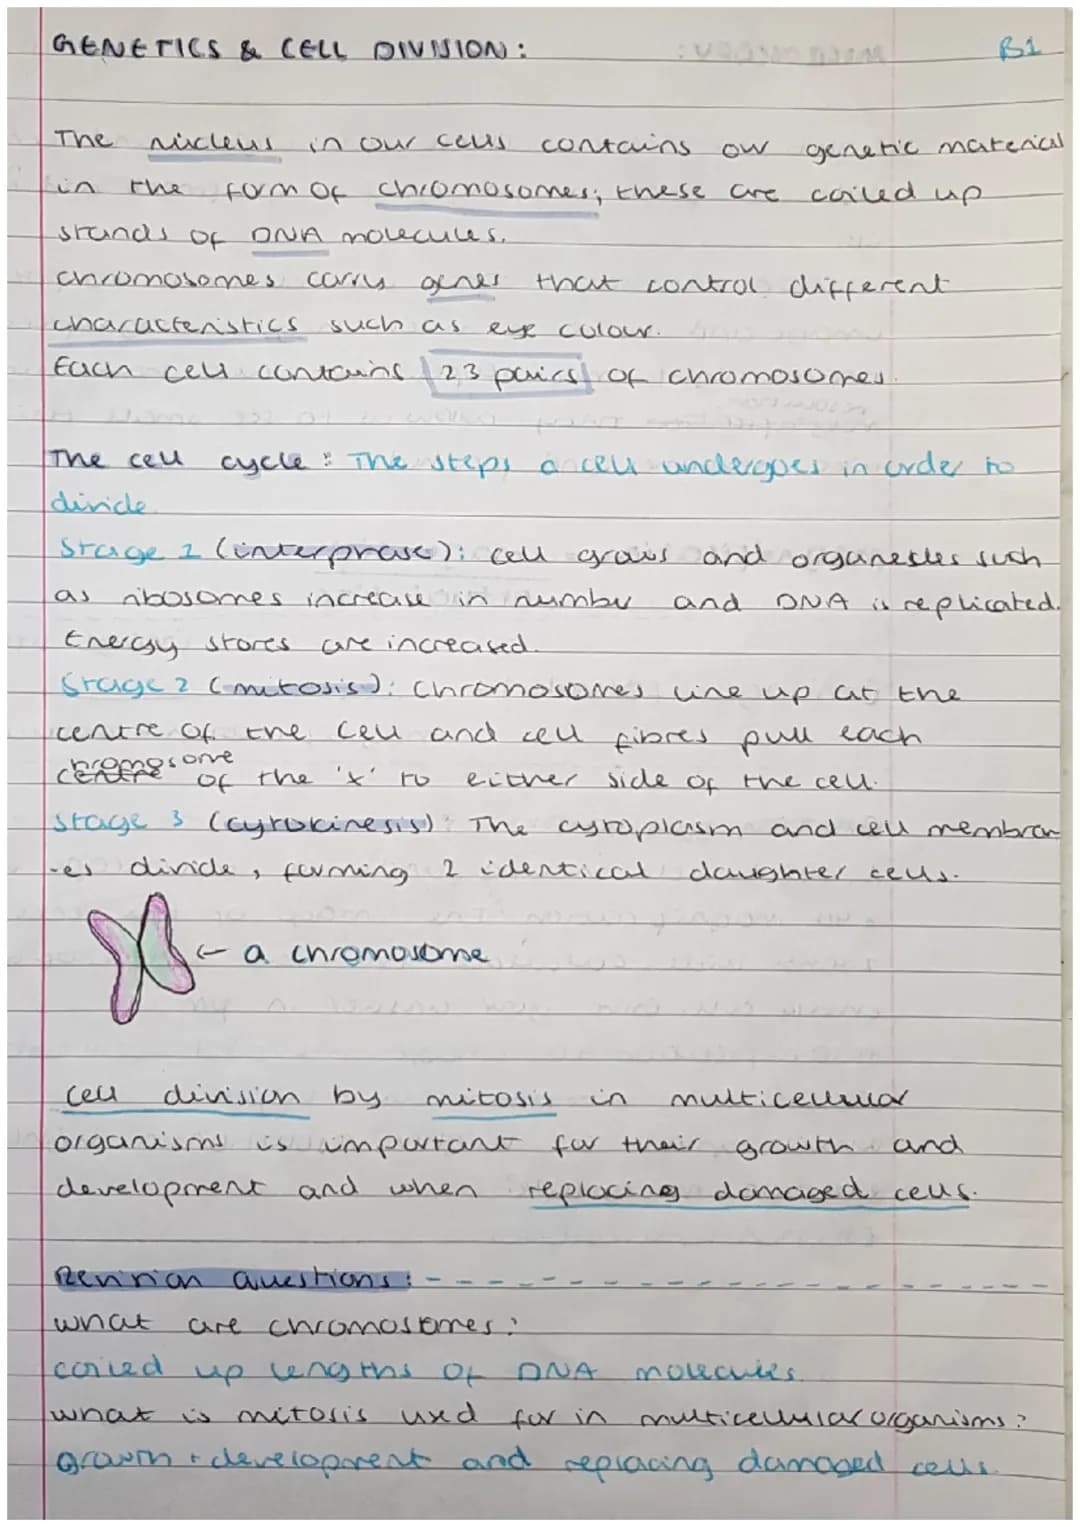 GENETICS & CELL DIVISION: B1
The nucleus in our cells contains our genetic material
in the form of chromosomes; these are coiled up
stands of DNA molecules.
chromosomes carry genes that control different
characteristics such as eye colour.
Each cell contains 23 pairs of chromosomes.
The cell cycle: The steps a cell undergoes in order to
divide.
Stage 1 (interphase): cell grows and organelles such
as ribosomes increase in number and DNA is replicated.
Energy stores are increased.
Stage 2 (mitosis): Chromosomes line up at the
centre of the cell and cell fibres pull each
chromosome of the 'x' to either side of the cell.
Stage 3 (cytokinesis): The cytoplasm and cell membran
-es divide, forming 2 identical daughter cells.
← a chromosome
Cell division by mitosis in multicellular
organisms is important for their growth and
development and when replacing damaged cells.
Revision questions:
what are chromosomes?
coiled up lengths of DNA molecules.
what is mitosis used for in multicellular organisms?
growth + development and replacing damaged cells.